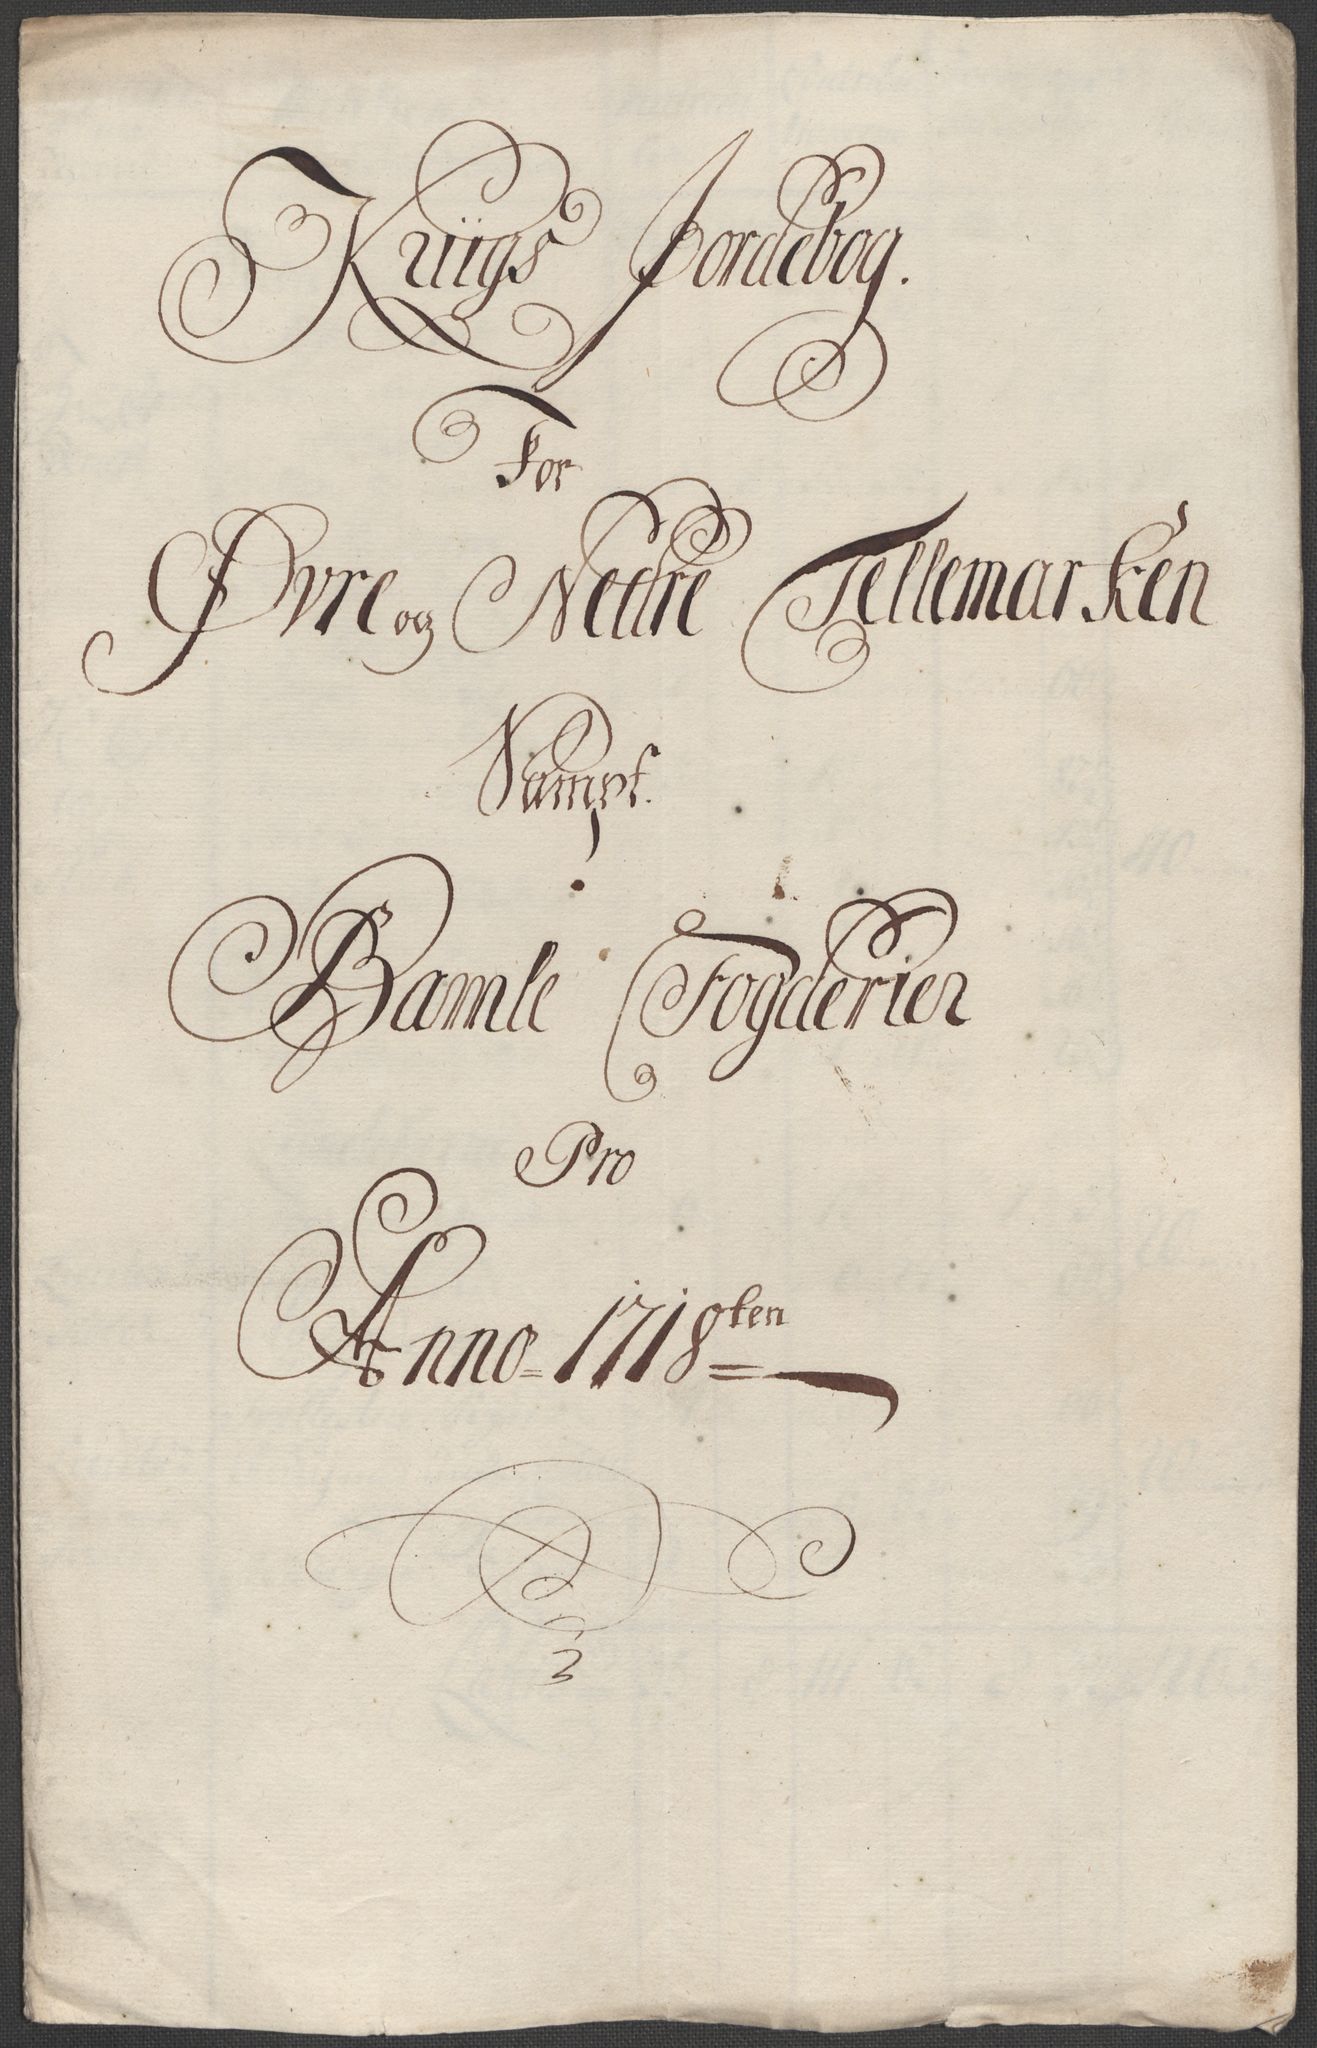 Krüigs Jordebog.
For
Øvre og Nedre Tellemarken
Sampt.
Bamle Fogderier
Pro
Anno = 1718ten =